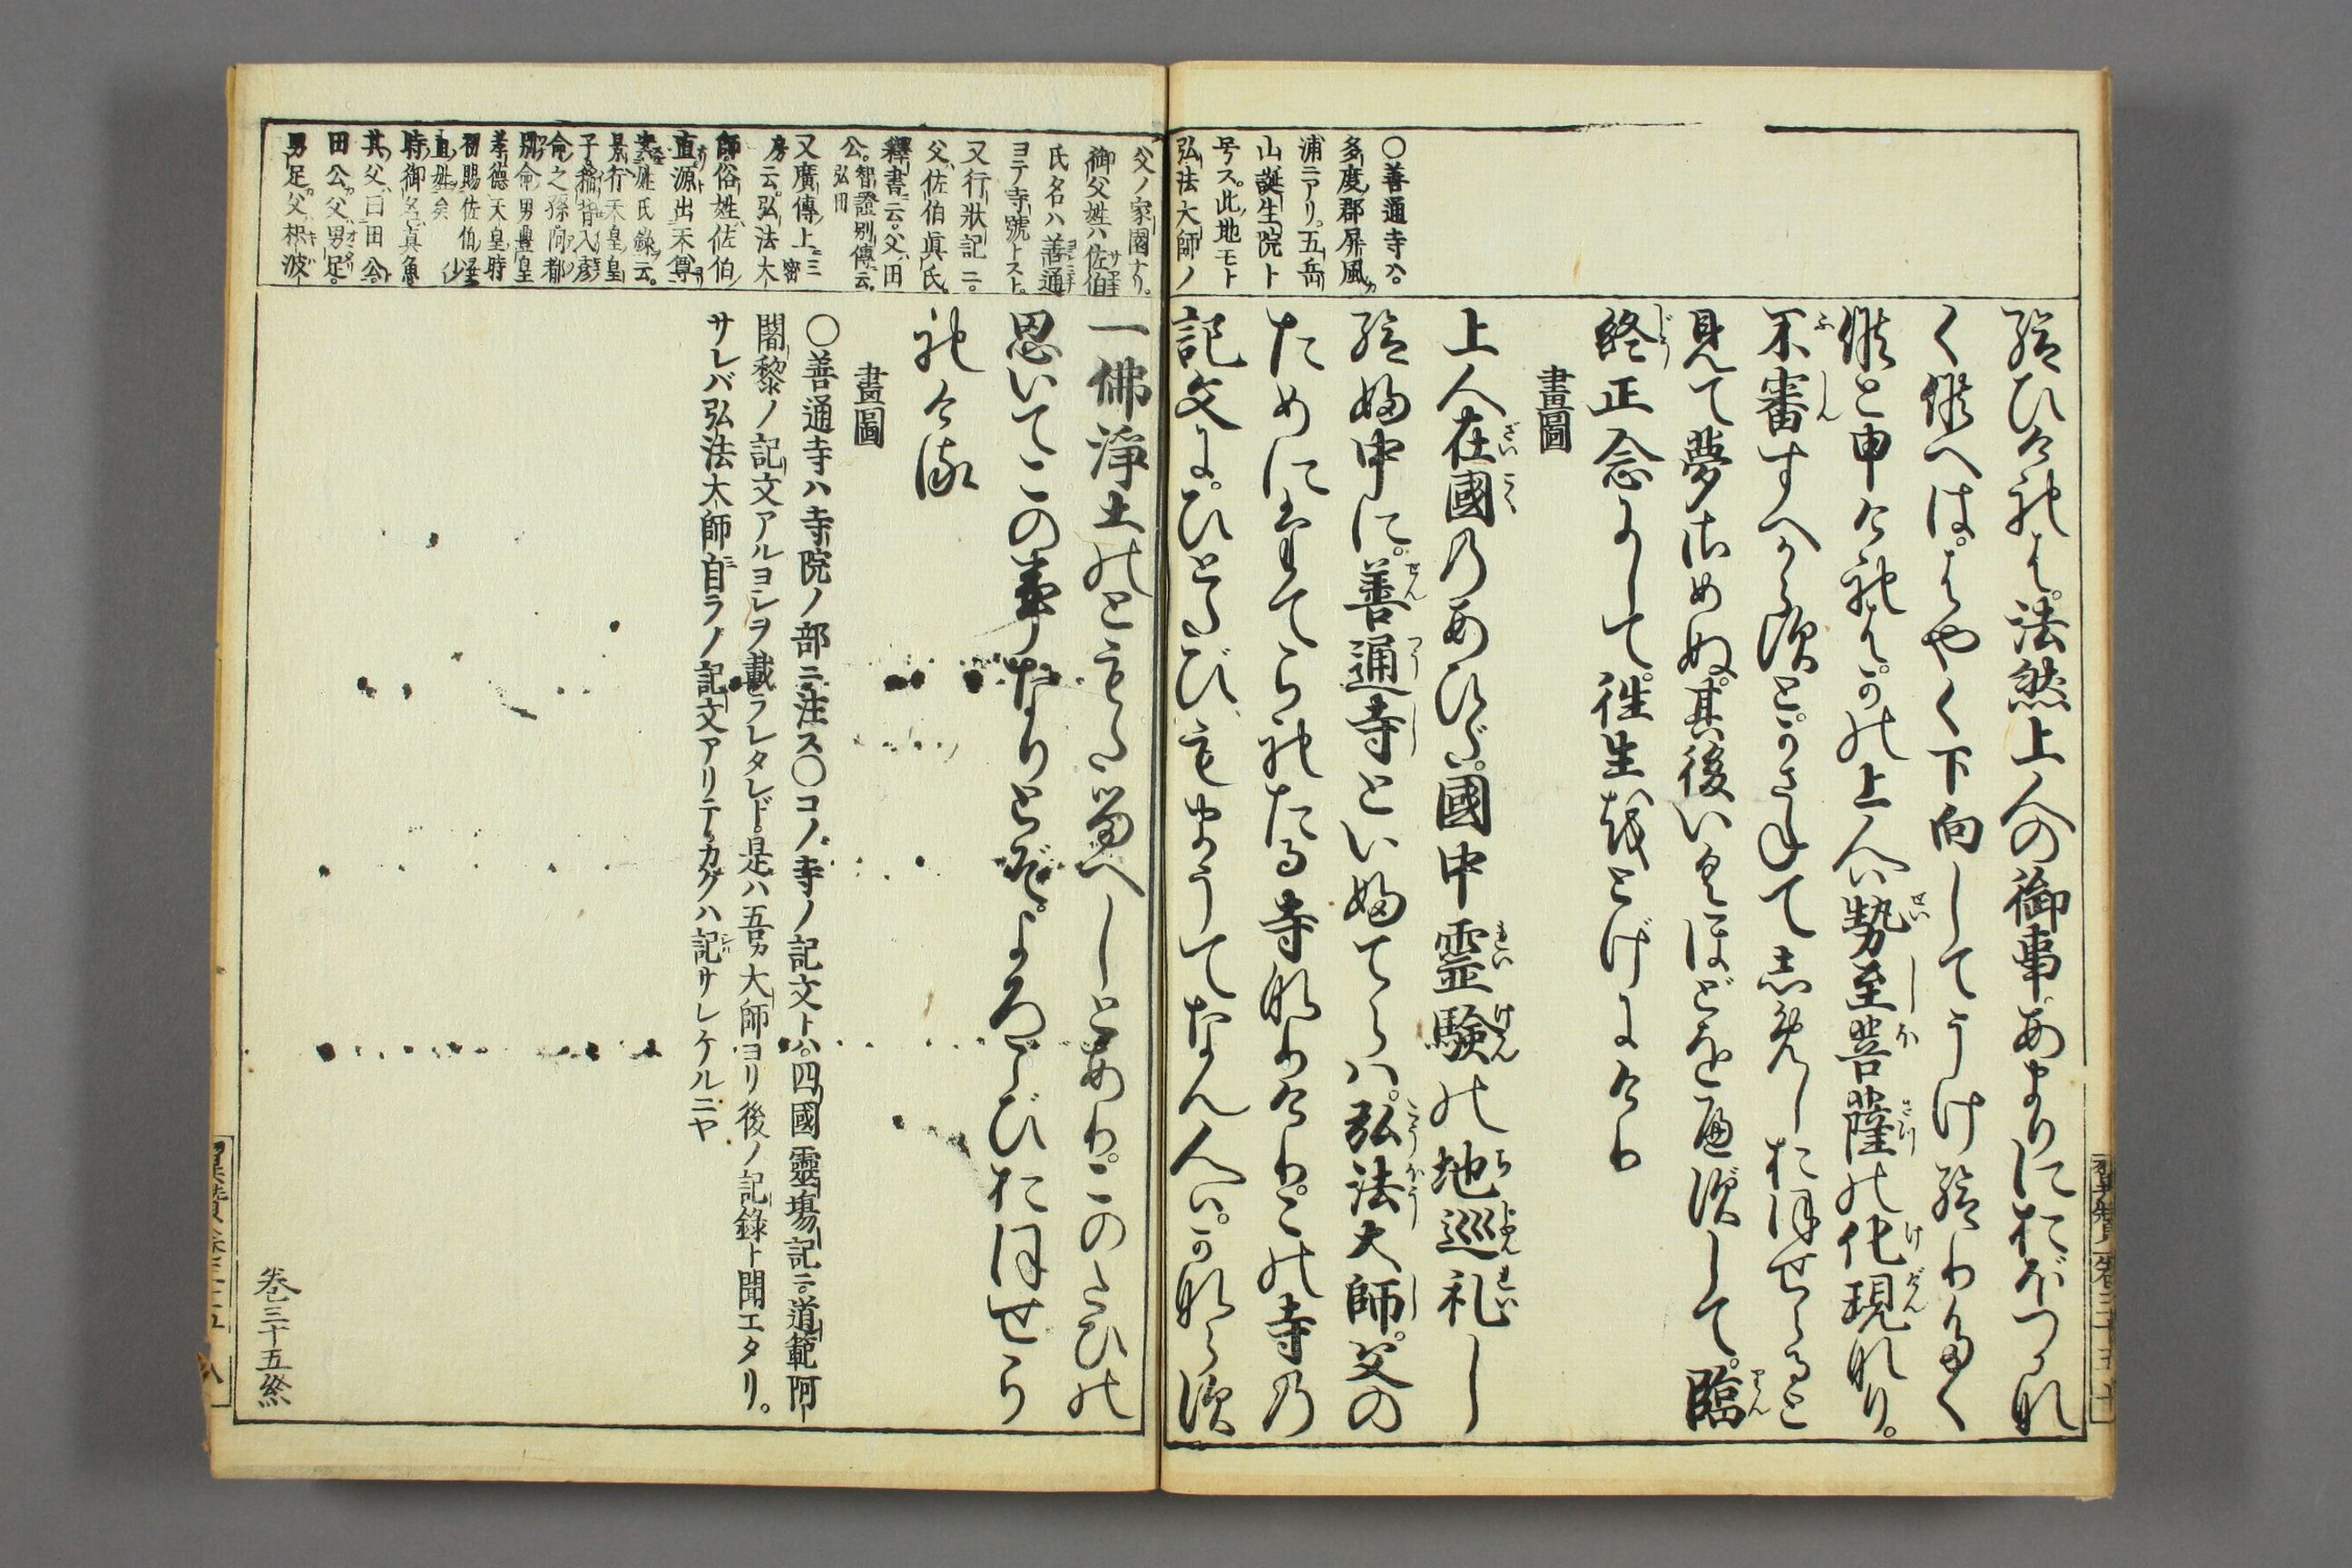 給ひけれは。法然上人の御事あまりにおぼつかな
く候へは。はやく下向してうけ給わるへく
候と申けれは。かの上人ハ勢至菩薩の化現なり。
不審すへからすと。かさねてしめしおほせらると
見て夢さめぬ。其後いくほどを歴ずして。臨
終正念にして。往生をとげにけり
畫圖
上人在國のあひだ。國中霊験の地巡礼し
給ふ中に。善通寺といふてらハ。弘法大師。父の
ためにたてられたる寺なりけり。この寺の
記文に。ひとたびもまうてなん人ハ。かならす
〇善通寺ハ。
多度郡屏風カ
浦ニアリ。五岳
山誕生院ト
号ス。此地モト
弘法大師ノ
父ノ家園ナリ。
御父姓ハ佐伯
氏名ハ善通
ヨテ寺號トスト。
又行狀記ニ。
父佐伯眞氏。
釋書云。父田
公。智證別傳云。弘田
又廣傳上三密房
云。弘法大
師俗姓佐伯
直源出天尊
姓氏錄云。
景行天皇皇
子稻背入彦
命之孫阿都
別命男豊皇
孝德天皇時
初賜佐伯
直姓矣
時御名真魚
其父曰田公。
田公父男足。
男足父枳波
一佛淨土のともたるへしとあり。このたひの
思いてこの事なりとぞ。よろこびおほせら
れける
畫圖
〇善通寺ハ寺院ノ部ニ注ス〇コノ寺ノ記文トハ。四國靈場記ニ。道範阿
闍黎ノ記文アルヨシヲ載ラレタレド。是ハ吾カ大師ヨリ後ノ記錄ト聞エタリ。
サレバ弘法大師自ラノ記文アリテ。カクハ記サレケルニヤ
巻三十五終